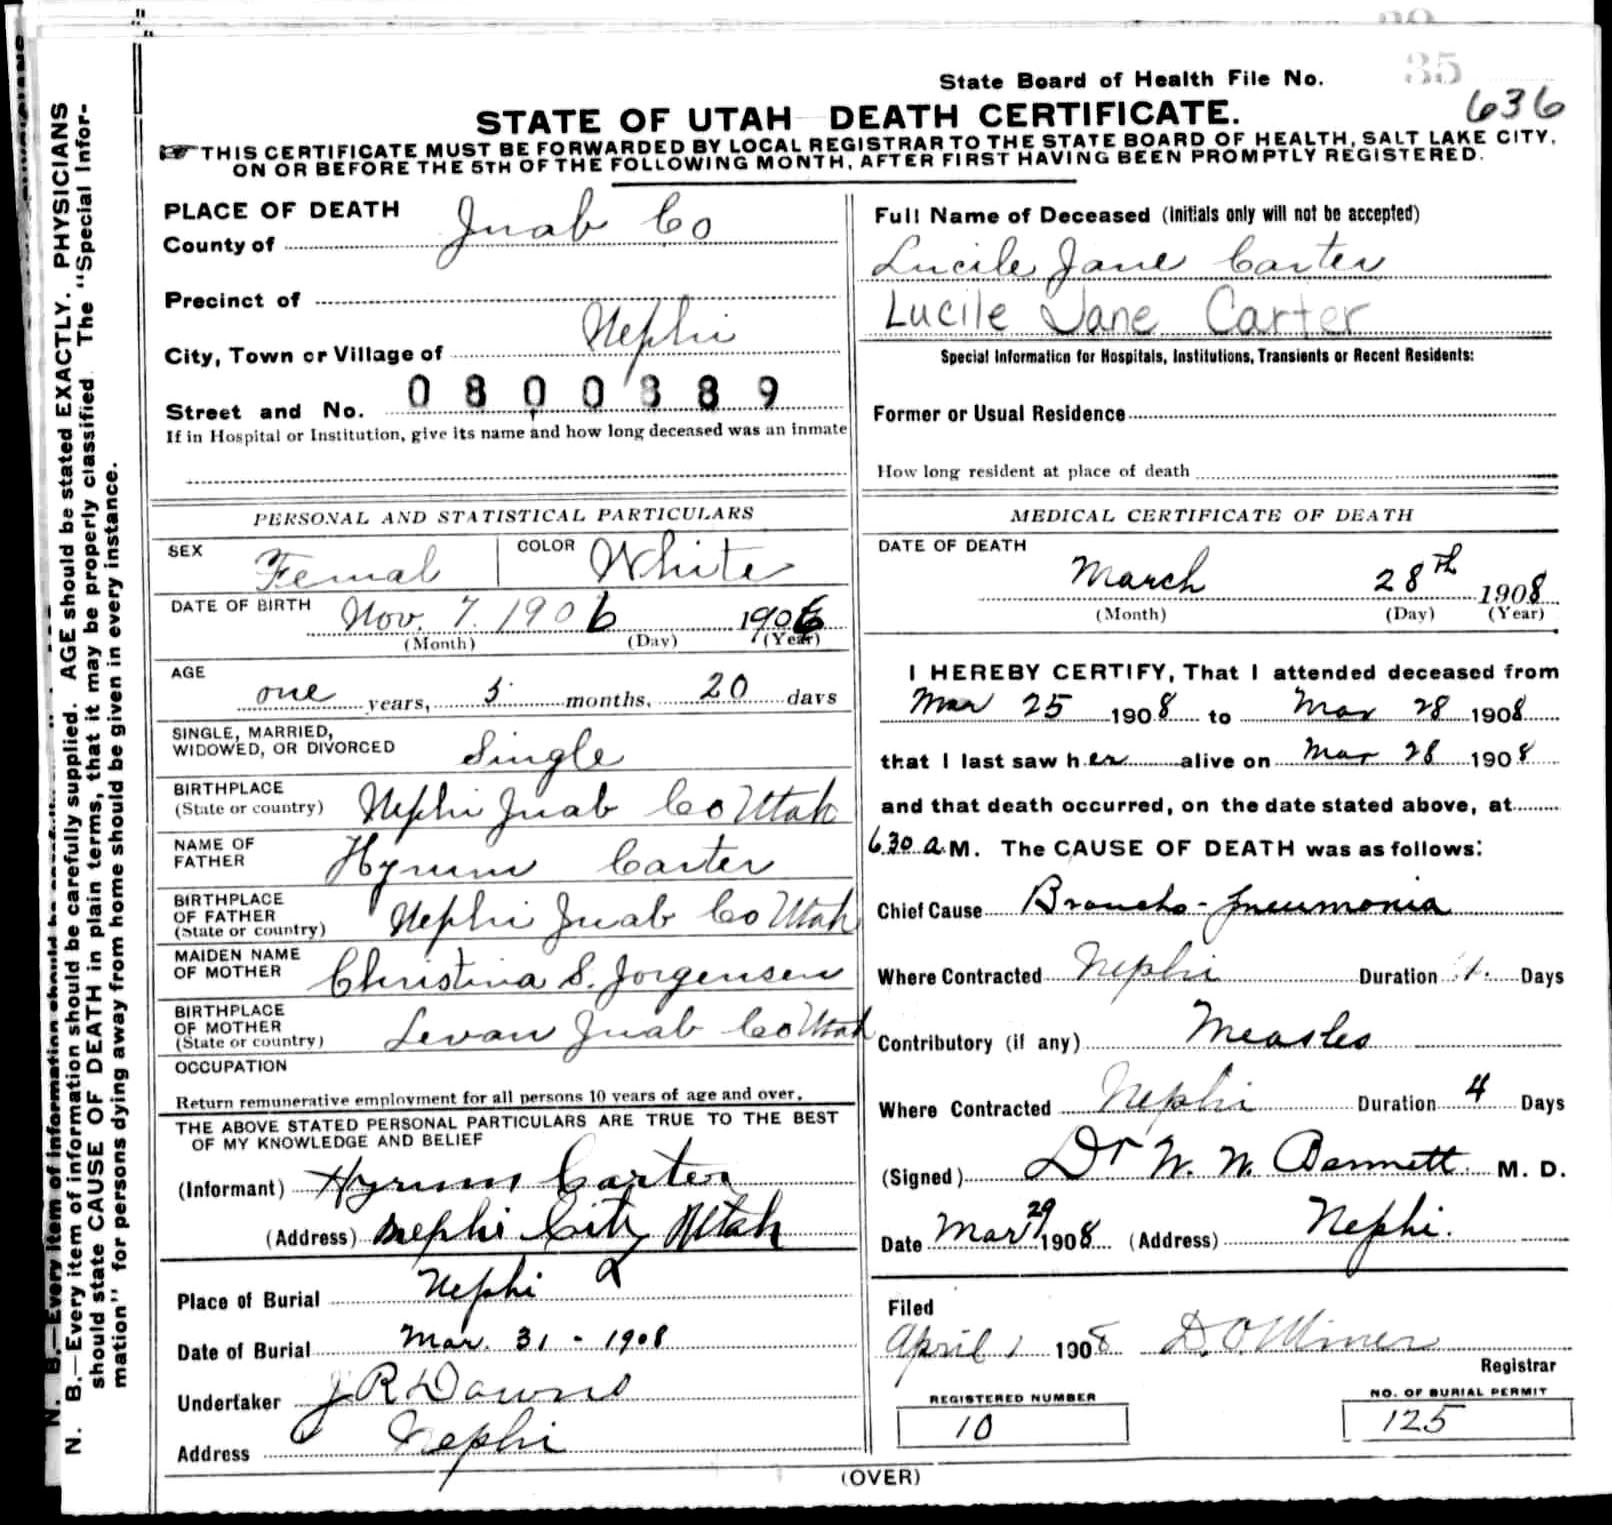 35
State Board of Health File No.
636
STATE OF UTAH DEATH CERTIFICATE.
THIS CERTIFICATE MUST BE FORWARDED BY LOCAL REGISTRAR TO THE STATE BOARD OF HEALTH, SALT LAKE CITY,
ON OR BEFORE THE 5TH OF THE FOLLOWING MONTH, AFTER FIRST HAVING BEEN PROMPTLY REGISTERED.
N. B.—Every item of information should be carefully supplied. AGE should be stated EXACTLY. PHYSICIANS
should state CAUSE OF DEATH in plain terms, that it may be properly classified. The "Special Infor-
mation" for persons dying away from home should be given in every instance.
PLACE OF DEATH
County of Juab Co
Precinct of
City, Town or Village of Nephi
0800889
Street and No.
If in Hospital or Institution, give its name and how long deceased was an inmate
PERSONAL AND STATISTICAL PARTICULARS
SEX Femal COLOR White
DATE OF BIRTH Nov. 7. 1906 1906
(Month) (Day) (Year)
AGE
one years, 5 months, 20 days
SINGLE, MARRIED,
WIDOWED, OR DIVORCED Single
BIRTHPLACE
(State or country) Nephi Juab Co Utah
NAME OF
FATHER Hyrum Carter
BIRTHPLACE
OF FATHER
(State or country) Nephi Juab Co Utah
MAIDEN NAME
OF MOTHER Christina S. Jorgensen
BIRTHPLACE
OF MOTHER
(State or country) Levan Juab Co Utah
OCCUPATION
Return remunerative employment for all persons 10 years of age and over.
THE ABOVE STATED PERSONAL PARTICULARS ARE TRUE TO THE BEST
OF MY KNOWLEDGE AND BELIEF
(Informant) Hyrum Carter
(Address) Nephi City Utah
Place of Burial Nephi
Date of Burial Mar. 31 - 1908
Undertaker J R Downs
Address Nephi
Full Name of Deceased (Initials only will not be accepted)
Lucile Jane Carter
Lucile Jane Carter
Special Information for Hospitals, Institutions, Transients or Recent Residents:
Former or Usual Residence
How long resident at place of death
MEDICAL CERTIFICATE OF DEATH
DATE OF DEATH
March 28th 1908
(Month) (Day) (Year)
I HEREBY CERTIFY, That I attended deceased from
Mar 25 1908 to Mar 28 1908
that I last saw her alive on Mar 28 1908
and that death occurred, on the date stated above, at
6 30 a. M. The CAUSE OF DEATH was as follows:
Chief Cause Broncho-pneumonia
Where Contracted Nephi Duration 1. Days
Contributory (if any) Measles
Where Contracted Nephi Duration 4 Days
(Signed) Dr W. W. Bennett M. D.
Date Mar 29 1908 (Address) Nephi.
Filed
April 1 1908 D. O. Miner
Registrar
REGISTERED NUMBER
10
NO. OF BURIAL PERMIT
125
(OVER)